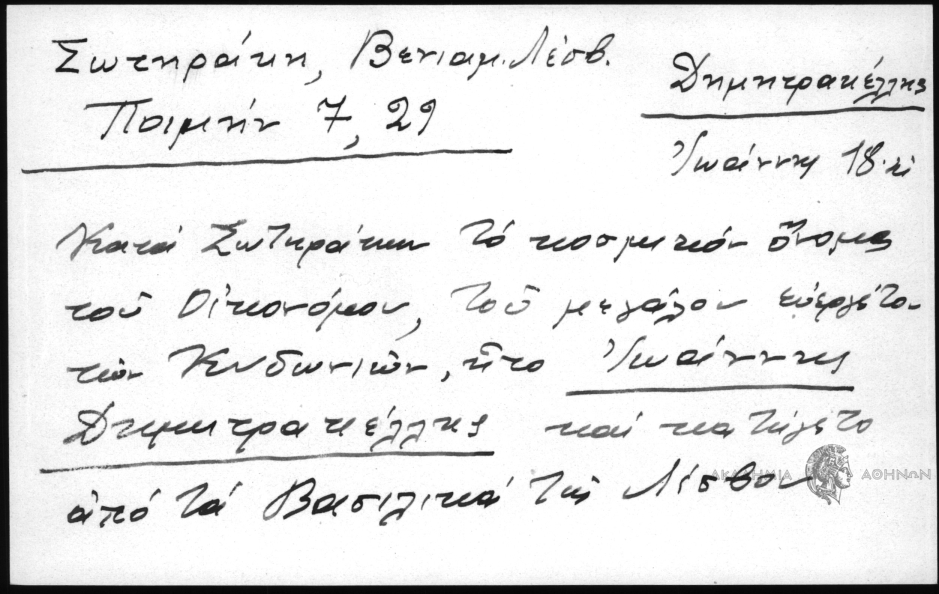 Σωτηράκη, Βενιαμ. Λέσβ.
Ποιμήν 7, 29
Δημητρακέλλης
Ἰωάννης 18. αἰ
Κατά Σωτηράκην τό κοσμικόν ὄνομα
τοῦ Οἰκονόμου, τοῦ μεγάλου εὐεργέτου
τῶν Κυδωνιῶν, ἦτο Ἰωάννης
Δημητρακέλλης καί κατήγετο
ἀπό τά Βασιλικά τῆς Λέσβου
ΑΚΑΔΗΜΙΑ ΑΘΗΝΩΝ